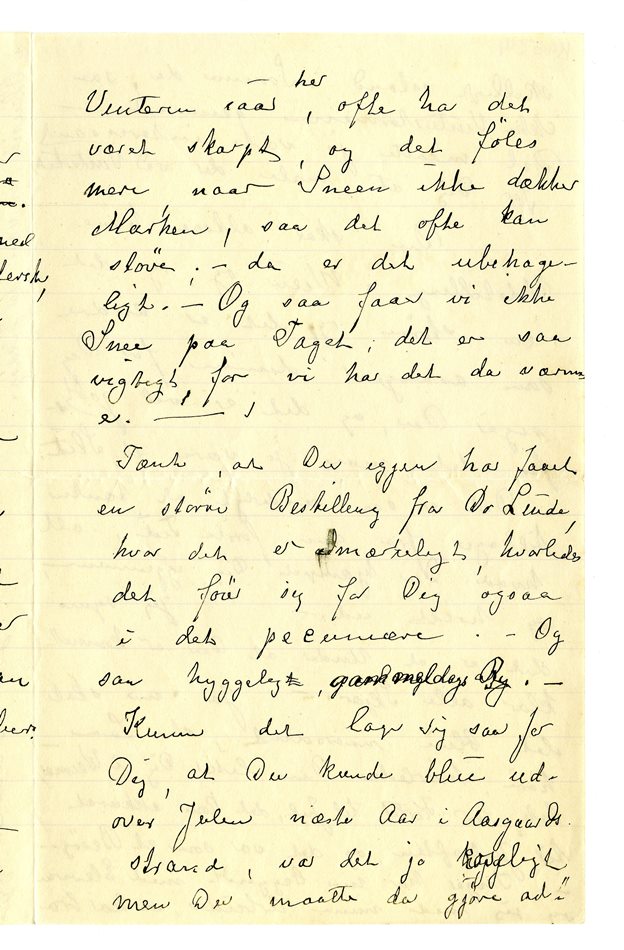 her
Vinteren iaar, ofte har det
været skarpt, og det föles
mere, naar Sneen ikke dækker
Marken, saa det ofte kan
støve; – da er det ubehage-
ligt. – Og saa faar vi ikke
Snee paa Taget, det er saa
vigtigt, for vi har det da varm-
e. —
Tænk, at Du igjen har faaet
en større Bestilling fra Dr Linde,
hvor det er mærkeligt, hvorledes
det föier sig for Dig ogsaa
i det pecuniære. – Og
saa hyggeligt, gammeldags By. –
Kunne det lage sig saa for
Dig, at Du kunde blive ud-
over Julen næste Aar i Aasgaards-
strand, var det jo hyggeligt
men Du maatte da gjøre ad i
ned
lersk,